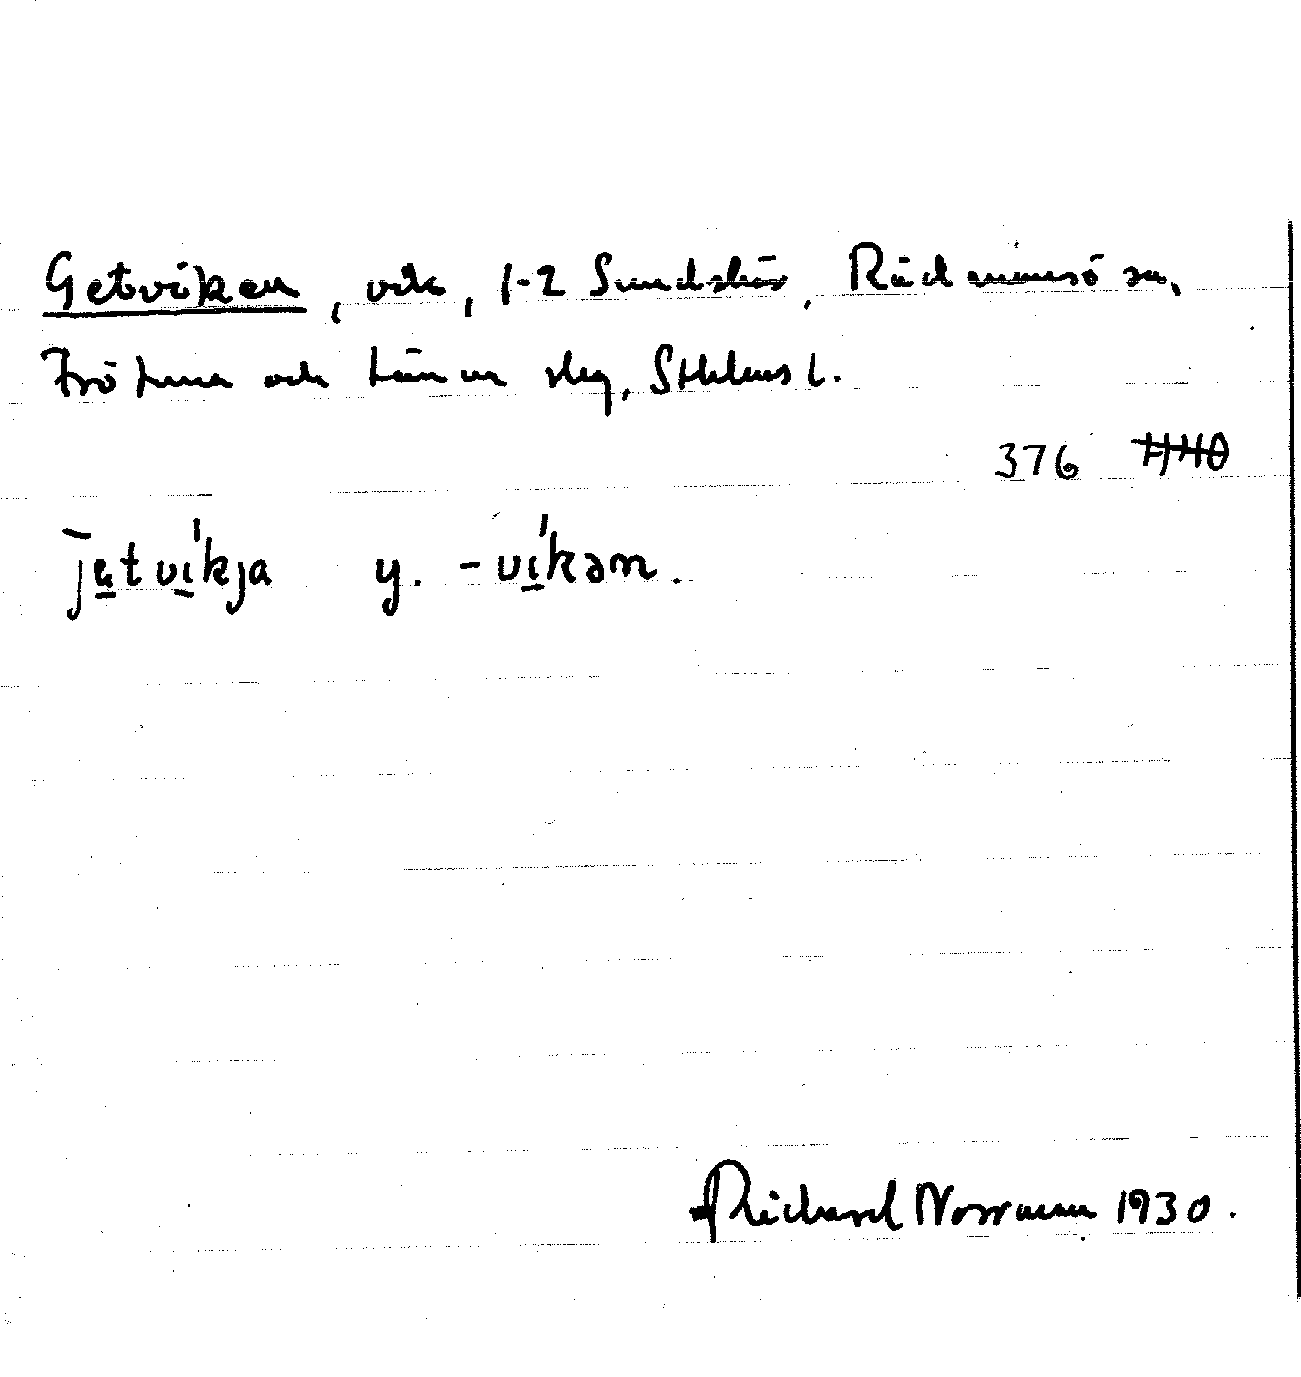 Getviken, vik, 1-2 Sundskär, Rådmansö sn,
Frötuna och Länna skg, Sthlms l.
376
jetvikja y. -vikən.
Richard Norrman 1930.